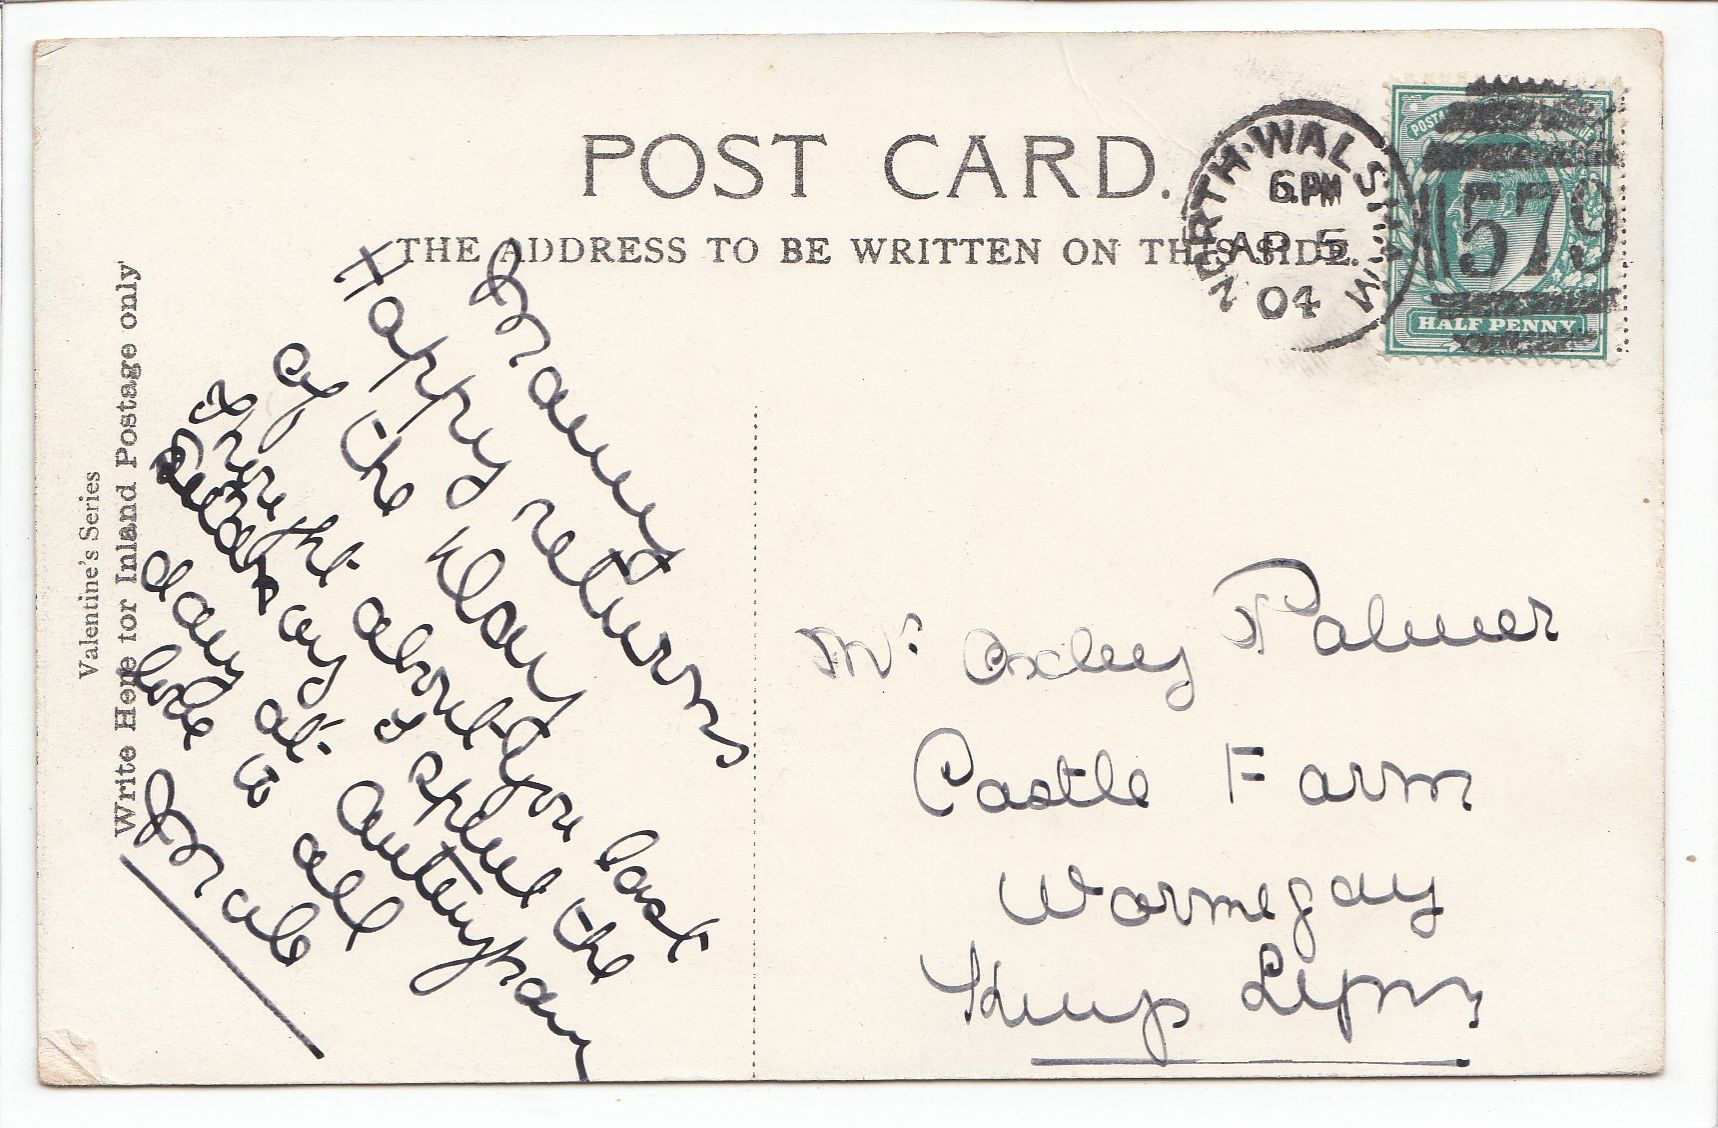 POST CARD.
THE ADDRESS TO BE WRITTEN ON THIS SIDE.
Valentine's Series
Write Here for Inland Postage only
NORTH·WALSHAM
6.PM
AP 5
04
579
POSTAGE REVENUE
HALF PENNY
Many
Happy returns
of the day
Hope the about you last
I spent the
day at
love to all
Mab
Mr Oxley Palmer
Castle Farm
Wormegay
Kings Lynn